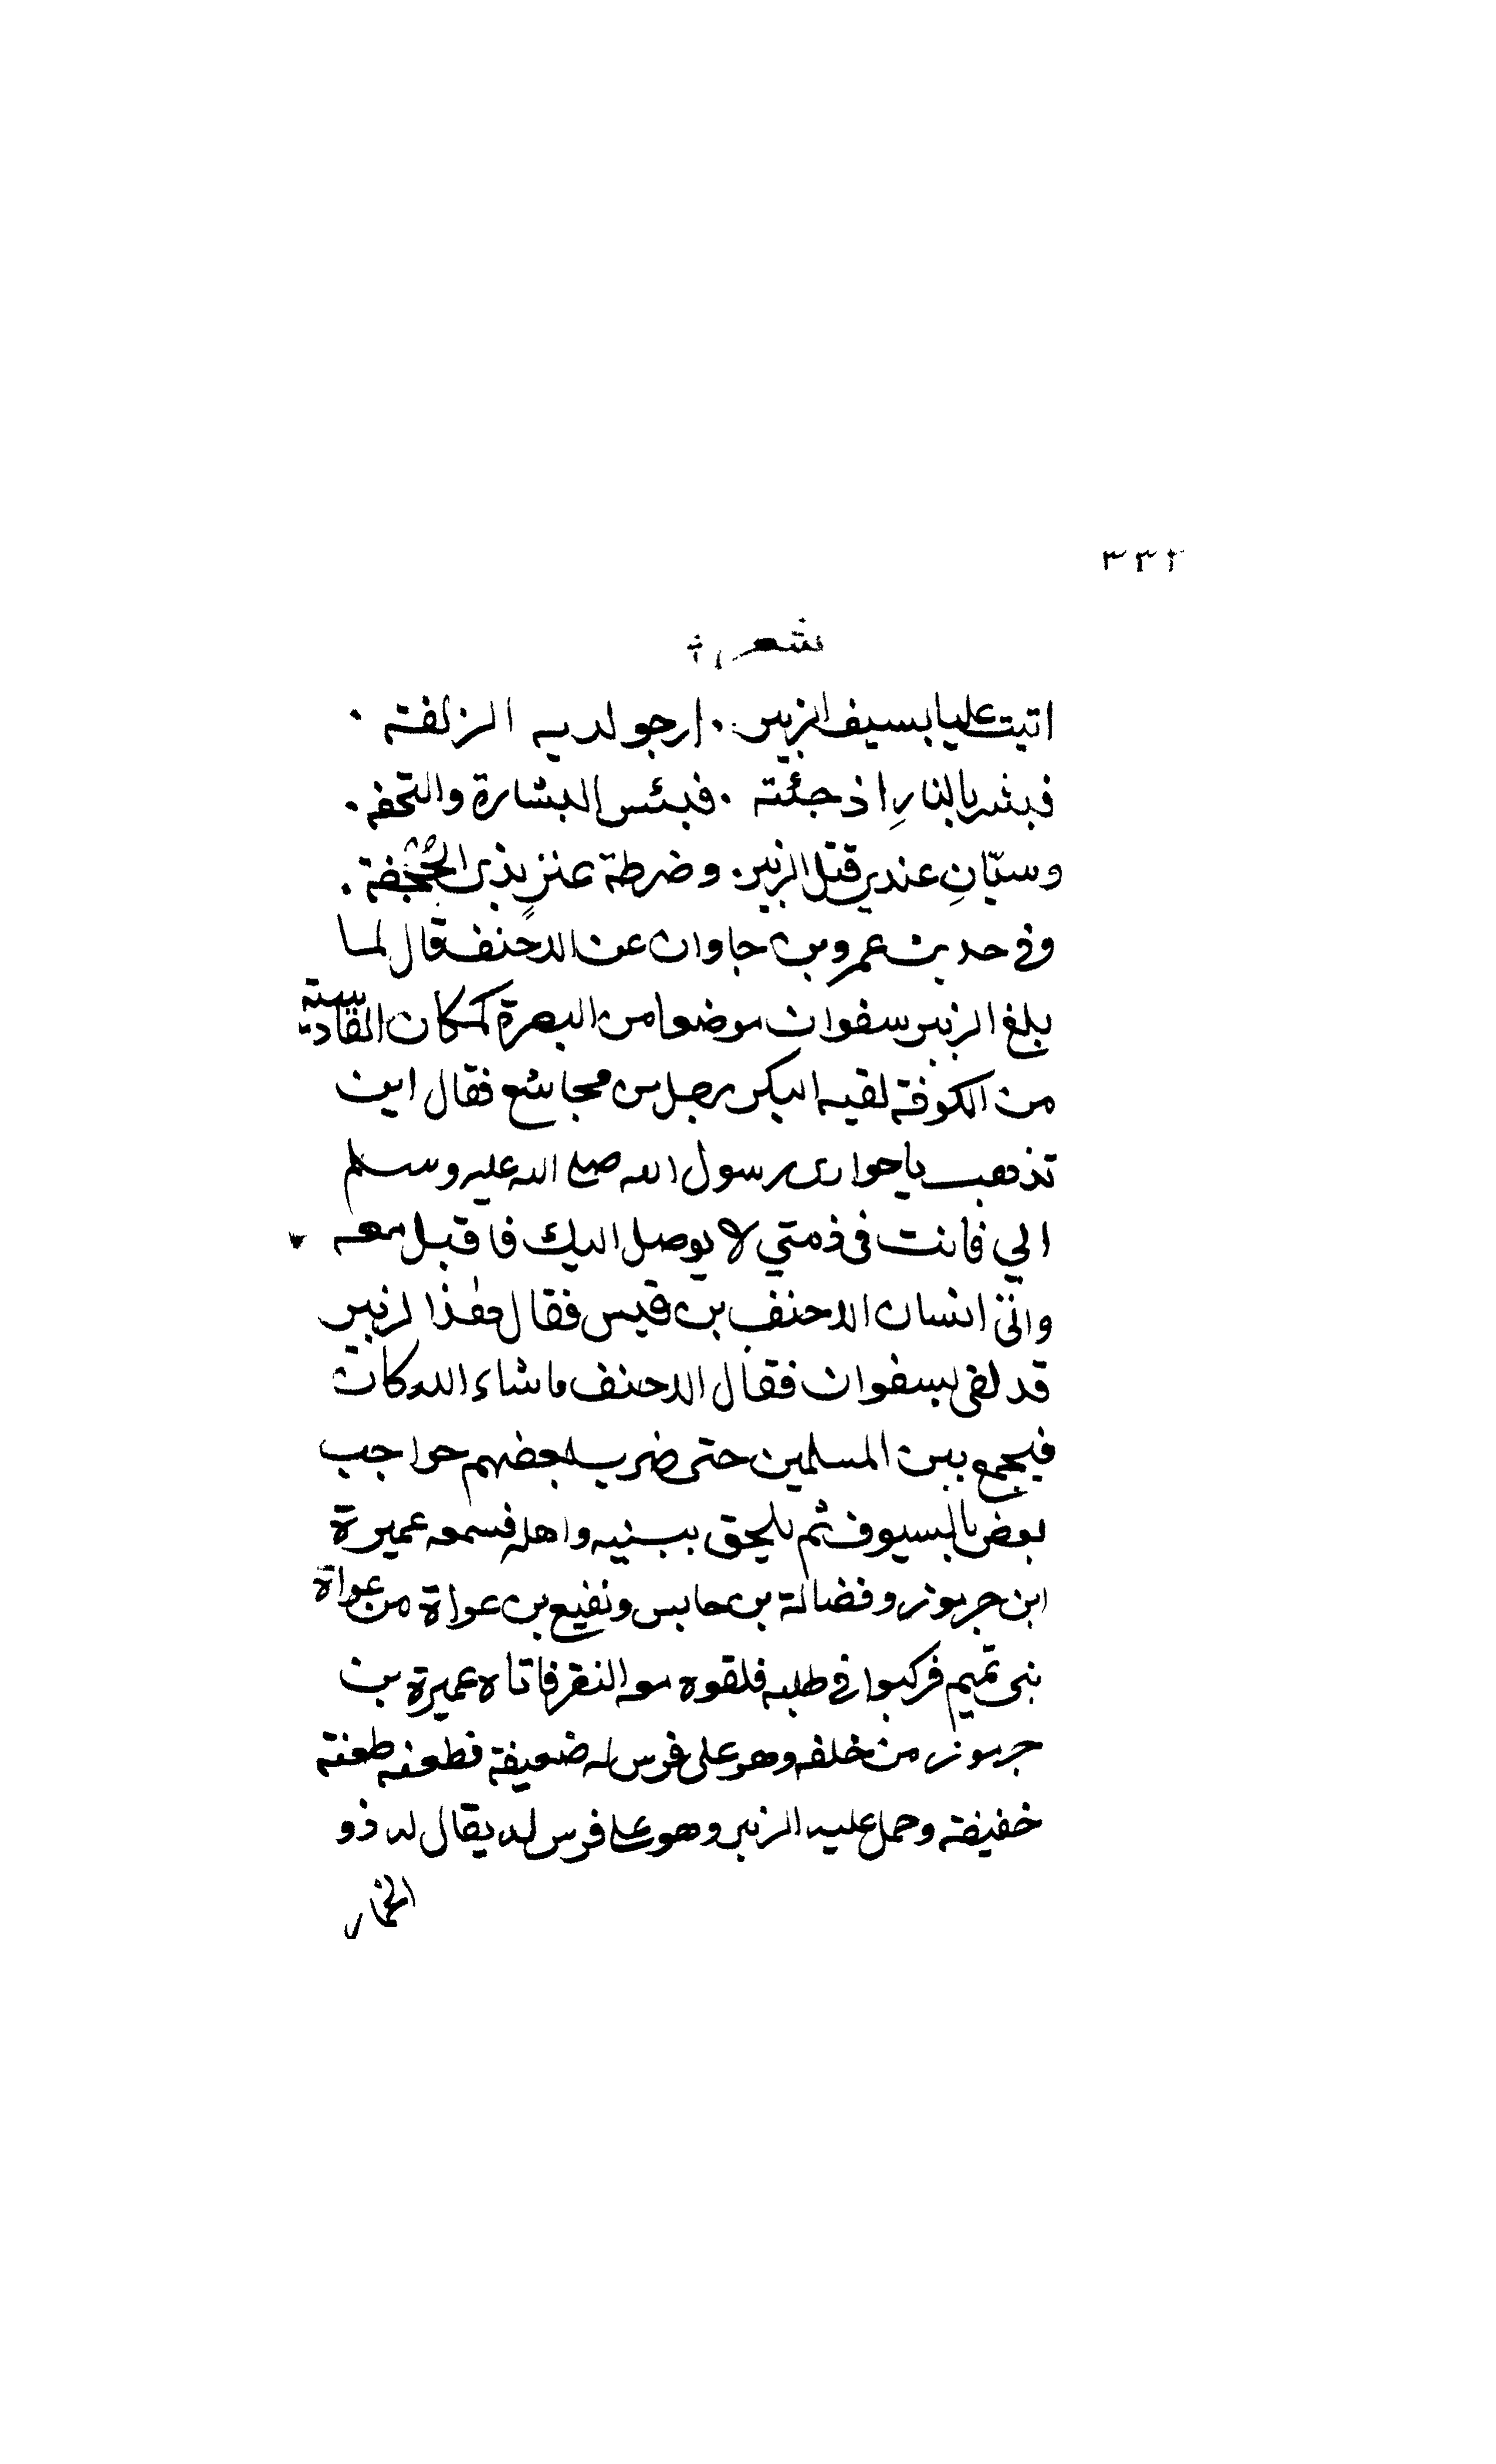 ٣٣٢
شعر
اتيت عليا بسيف الزبير . ارجو لديه الزلفة .
فبشر بالنارِ اذ جئته . فبئس البشارة والتحفه .
وسيّانِ عندي قتل الزبير . وضرطة عنزٍ بذى الجحفة .
وفي حديث عمرو بن جاوان عن الاحنف قال لما
بلغ الزبير سفوان موضعا من البصرة كمكان القادسية
من الكوفة لقيه البكر رجل من مجاشع فقال اين
تذهب يا حوارى رسول الله صلى الله عليه وسلم
الي فانت في ذمتي لا يوصل اليك فاقبل معه
واتى انسان الاحنف بن قيس فقال هذا لزبير
قد لقى بسفوان فقال الاحنف ما شاء الله كان
فيجمع بين المسلمين حتى ضرب بعضهم حواجب
بعض بالسيوف ثم يلحق ببنيه واهله فسمعه عميرة
ابن جرموز وفضالة بن حابس ونفيع بن غواة من غواة
بنى تميم فركبوا في طلبه فلقوه مع النفر فاتاه عميرة بن
جرموز من خلفه وهو على فرس له ضعيفة فطعنه طعنة
خفيفة وحمل عليه الزبير وهو على فرس له يقال له ذو
الخمار